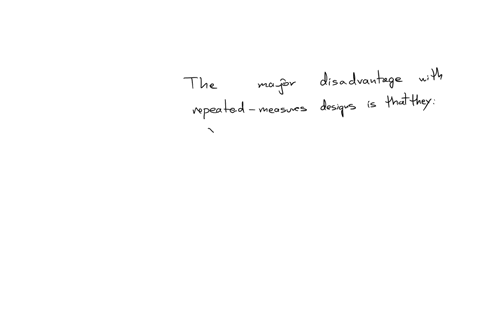 The major disadvantage with
repeated-measures designs is that they: